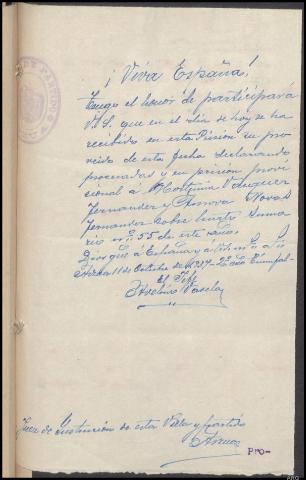 ¡Viva España!
Tengo el honor de participar á
V.S. que en el dia de hoy se ha
recibido en esta Prision su pro-
veido de esta fecha declarando
procesadas y en prisión provi-
sional á
Fernandez y Novas
Fernandez sobre hurto suma-
rio nº 55 de este
Dios gue á España y á V.S. m a
11 de Octubre de 1937 - 2º año Triunfal-
El Jefe
Varela
Juez de Instrucción de esta Villa y partido
Pro-